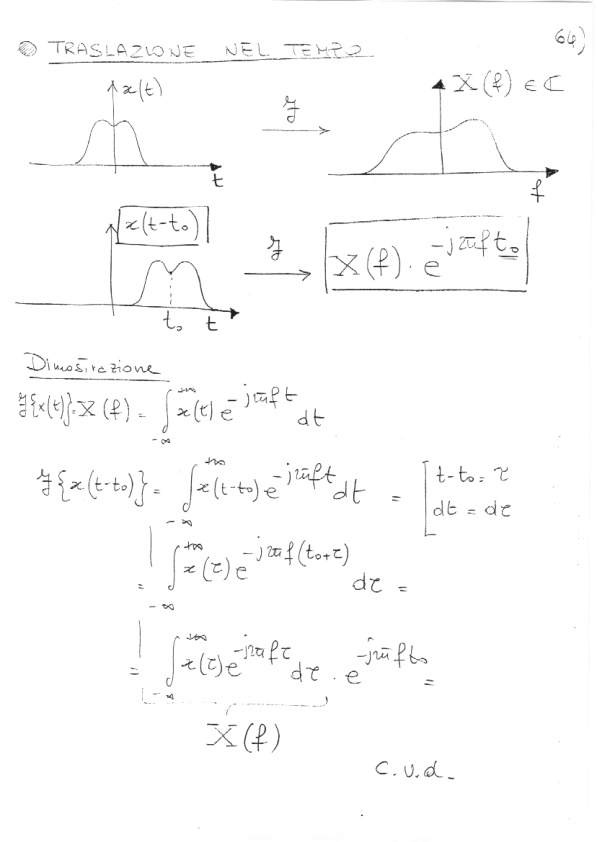 64)
TRASLAZIONE NEL TEMPO
x(t)
ℱ
X(f) ∈ ℂ
t
f
x(t-t₀)
ℱ
X(f) · e^{-j2πft₀}
t₀ t
Dimostrazione
ℱ{x(t)} = X(f) = ∫_{-∞}^{+∞} x(t) e^{-j2πft} dt
ℱ{x(t-t₀)} = ∫_{-∞}^{+∞} x(t-t₀) e^{-j2πft} dt = [t-t₀ = τ
dt = dτ
= ∫_{-∞}^{+∞} x(τ) e^{-j2πf(t₀+τ)} dτ =
= ∫_{-∞}^{+∞} x(τ) e^{-j2πfτ} dτ · e^{-j2πft₀} =
X(f)
C.V.d.